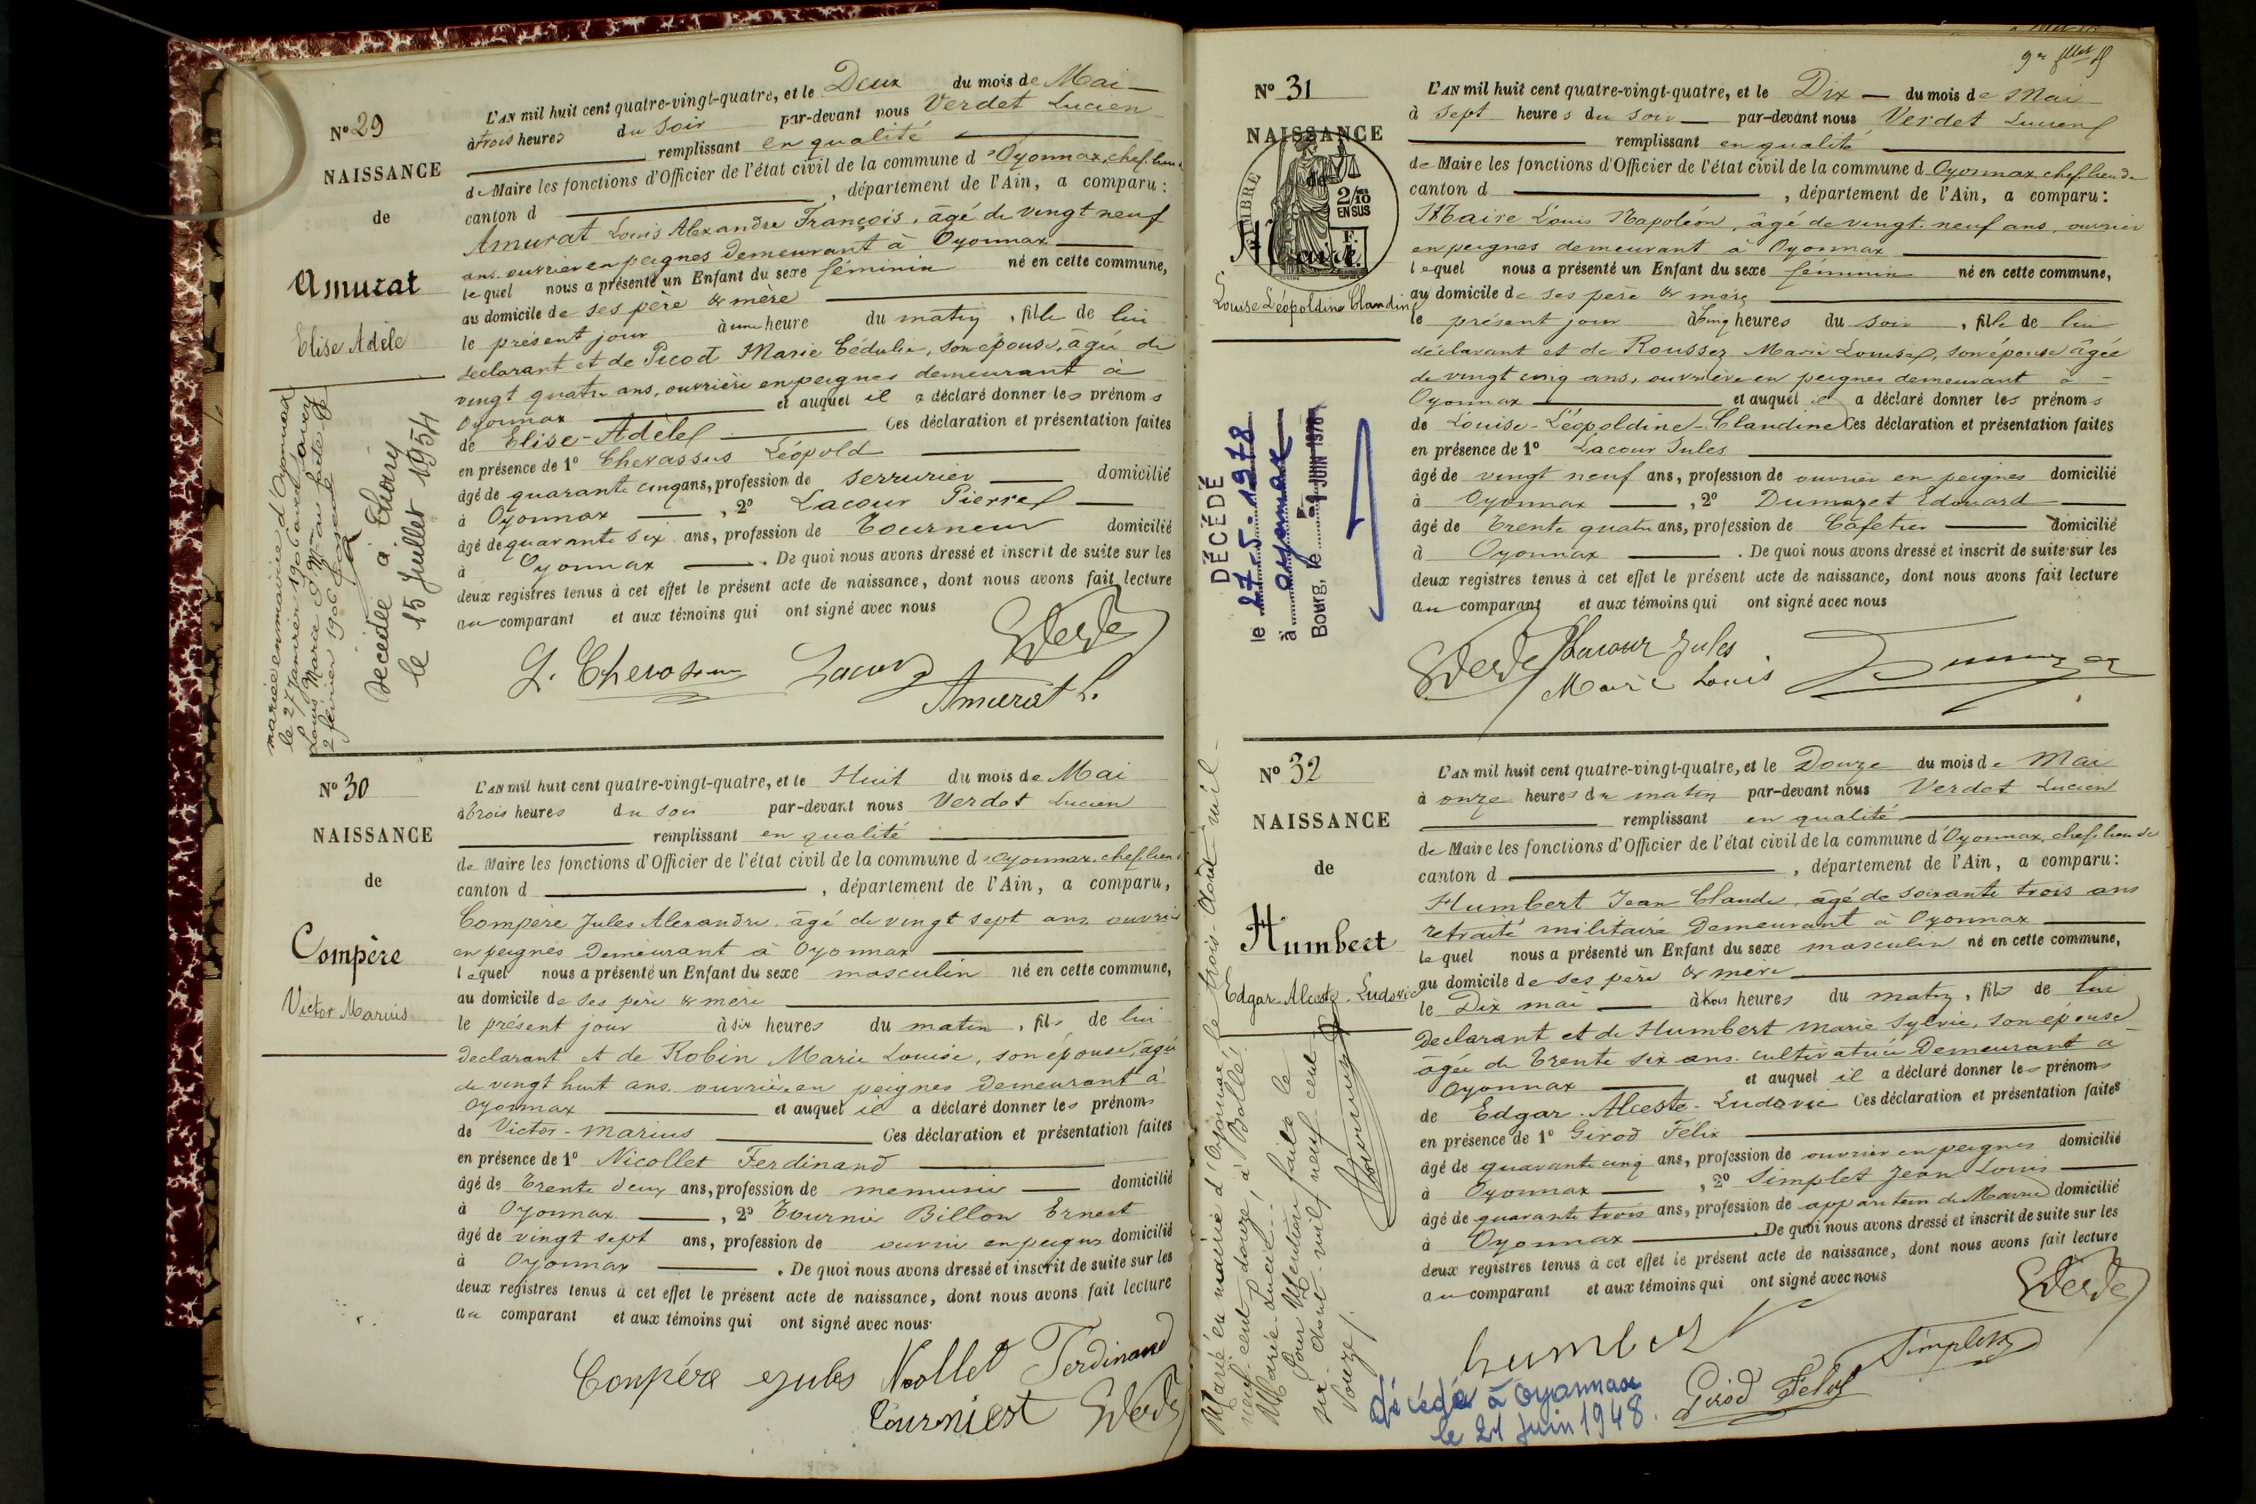 Nº 29
NAISSANCE
de
Amurat
Elise Adèle
L'AN mil huit cent quatre-vingt-quatre, et le Deux du mois de Mai
à trois heures du soir par-devant nous Verdet Lucien
remplissant en qualité
de Maire les fonctions d'Officier de l'état civil de la commune d'Oyonnax, chef lieu de
canton d , département de l'Ain, a comparu :
Amurat Louis Alexandre François, âgé de vingt neuf
ans ouvrier en peignes demeurant à Oyonnax
lequel nous a présenté un Enfant du sexe féminin né en cette commune,
au domicile de ses père & mère
le présent jour à une heure du matin, fille de lui
déclarant et de Picod Marie Cédulie, son épouse, âgée de
vingt quatre ans, ouvrière en peignes demeurant à
Oyonnax et auquel il a déclaré donner les prénoms
de Elise-Adèle Ces déclaration et présentation faites
en présence de 1º Chevassus Léopold
âgé de quarante cinq ans, profession de serrurier domicilié
à Oyonnax , 2º Lacour Pierre
âgé de quarante six ans, profession de Tourneur domicilié
à Oyonnax . De quoi nous avons dressé et inscrit de suite sur les
deux registres tenus à cet effet le présent acte de naissance, dont nous avons fait lecture
au comparant et aux témoins qui ont signé avec nous
Lacour
Amurat L.
mariée en mairie d'Oyonnax
le 27 Janvier 1906 avec
Louis Marie
2 février 1906
Décédée à Thoiry
le 15 Juillet 1954
Nº 30
NAISSANCE
de
Compère
Victor Marius
L'AN mil huit cent quatre-vingt-quatre, et le Huit du mois de Mai
à trois heures du soir par-devant nous Verdet Lucien
remplissant en qualité
de Maire les fonctions d'Officier de l'état civil de la commune d'Oyonnax, chef lieu de
canton d , département de l'Ain, a comparu,
Compère Jules Alexandre âgé de vingt sept ans ouvrier
en peignes Demeurant à Oyonnax
lequel nous a présenté un Enfant du sexe masculin né en cette commune,
au domicile de ses père & mère
le présent jour à six heures du matin, fils de lui
declarant et de Robin Marie Louise, son épouse, âgée
de vingt huit ans ouvrière en peignes Demeurant à
Oyonnax et auquel il a déclaré donner les prénoms
de Victor-Marius Ces déclaration et présentation faites
en présence de 1º Nicollet Ferdinand
âgé de Trente deux ans, profession de menuisier domicilié
à Oyonnax , 2º Tournier Billon Ernest
âgé de vingt sept ans, profession de ouvrier en peignes domicilié
à Oyonnax . De quoi nous avons dressé et inscrit de suite sur les
deux registres tenus à cet effet le présent acte de naissance, dont nous avons fait lecture
au comparant et aux témoins qui ont signé avec nous
Compère Jules Nicollet Ferdinand
Nº 31
NAISSANCE
de
Maire
Louise Léopoldine Claudine
2/10
EN SUS
L'AN mil huit cent quatre-vingt-quatre, et le Dix du mois de Mai
à sept heures du soir par-devant nous Verdet Lucien
remplissant en qualité
de Maire les fonctions d'Officier de l'état civil de la commune d Oyonnax chef lieu de
canton d , département de l'Ain, a comparu :
Maire Louis Napoléon, âgé de vingt neuf ans, ouvrier
en peignes demeurant à Oyonnax
lequel nous a présenté un Enfant du sexe féminin né en cette commune,
au domicile de ses père & mère
le présent jour à cinq heures du soir, fille de lui
déclarant et de Roussez Marie Louise, son épouse âgée
de vingt cinq ans, ouvrière en peignes demeurant à
Oyonnax et auquel il a déclaré donner les prénoms
de Louise-Léopoldine-Claudine Ces déclaration et présentation faites
en présence de 1º Lacour Jules
âgé de vingt neuf ans, profession de ouvrier en peignes domicilié
à Oyonnax , 2º Dumazet Edouard
âgé de Trente quatre ans, profession de Cafetier domicilié
à Oyonnax . De quoi nous avons dressé et inscrit de suite sur les
deux registres tenus à cet effet le présent acte de naissance, dont nous avons fait lecture
au comparant et aux témoins qui ont signé avec nous
Lacour Jules
Maire Louis
DÉCÉDÉ
le 27-5-1978
à oyonnax
Bourg, le JUIN 1978
Nº 32
NAISSANCE
de
Humbert
Edgar-Alceste-Ludovic
L'AN mil huit cent quatre-vingt-quatre, et le Douze du mois de Mai
à onze heures du matin par-devant nous Verdet Lucien
remplissant en qualité
de Maire les fonctions d'Officier de l'état civil de la commune d'Oyonnax, chef lieu de
canton d , département de l'Ain, a comparu :
Humbert Jean Claude, âgé de soixante trois ans
retraité militaire Demeurant à Oyonnax
lequel nous a présenté un Enfant du sexe masculin né en cette commune,
au domicile de ses père & mère
le Dix mai à trois heures du matin, fils de lui
Declarant et de Humbert Marie Sylvie, son épouse
âgée de Trente six ans cultivatrice Demeurant à
Oyonnax et auquel il a déclaré donner les prénoms
de Edgar-Alceste-Ludovic Ces déclaration et présentation faites
en présence de 1º Girod Félix
âgé de quarante cinq ans, profession de ouvrier en peignes domicilié
à Oyonnax , 2º Simplet Jean Louis
âgé de quarante trois ans, profession de appariteur de Mairie domicilié
à Oyonnax . De quoi nous avons dressé et inscrit de suite sur les
deux registres tenus à cet effet le présent acte de naissance, dont nous avons fait lecture
au comparant et aux témoins qui ont signé avec nous
humbert
Simplet
Girod Felix
Marié en mairie d'Oyonnax le trois Août mil
neuf cent douze, à Bollé
Marie-Lucie. Pour Mention faite le
six Août mil neuf cent
douze/.
décédé à Oyonnax
le 21 juin 1948.